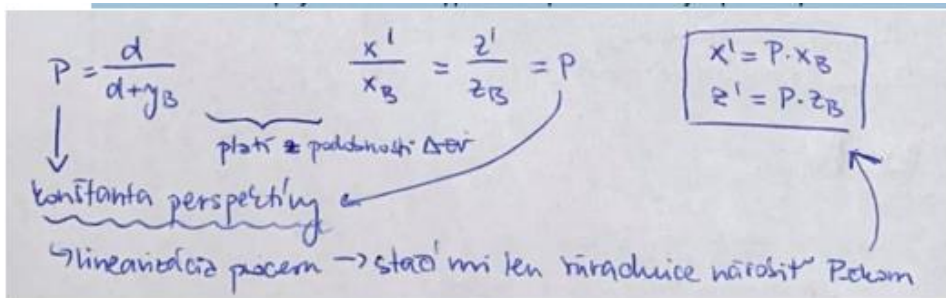 P = d / (d+y_B)    x' / x_B = z' / z_B = P    x' = P·x_B
z' = P·z_B
platí z podobnosti Δ-ov
konštanta perspektívy
↳ linearizácia procesu → stačí mi len súradnice násobiť P-čkom